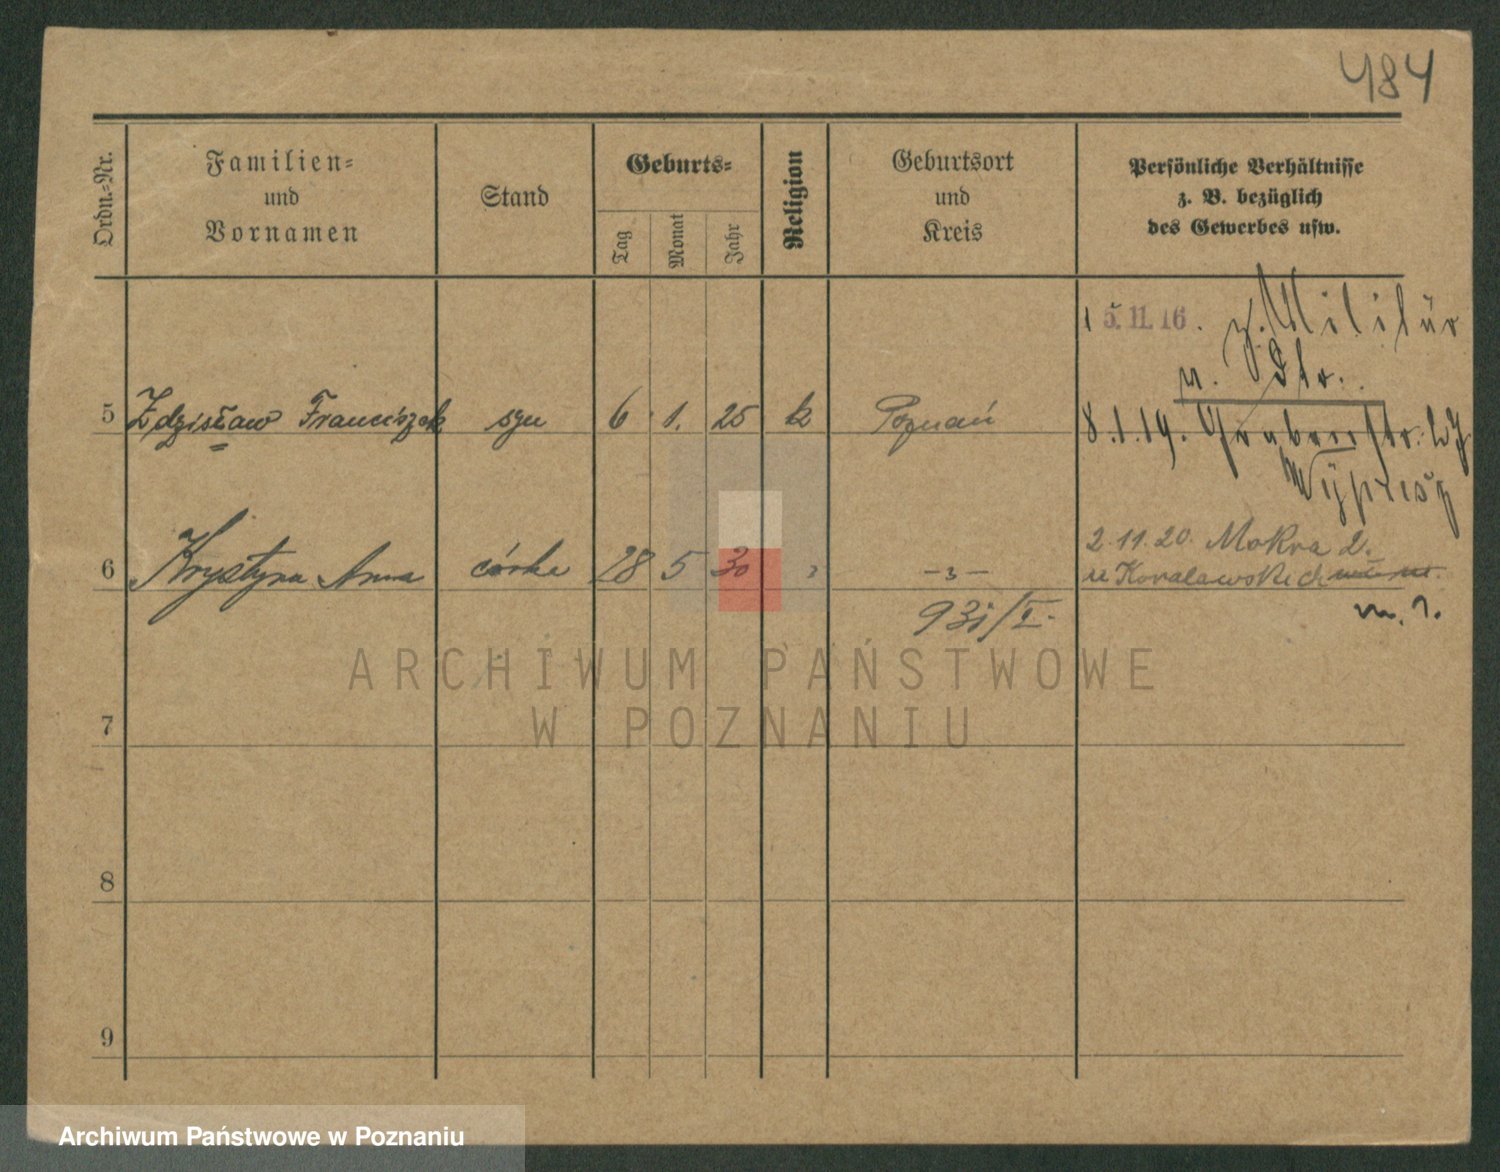 484
Ordn.-Nr.
Familien-
und
Vornamen
Stand
Geburts-
Tag
Monat
Jahr
Religion
Geburtsort
und
Kreis
Persönliche Verhältnisse
z. B. bezüglich
des Gewerbes usw.
15.11.16. z. Militär
5 Zdzisław Franciszek syn 6 1. 25 k Poznań
8.1.19. Grabenstr. 27
6 Krystyna Anna córka 28 5 30
2.11.20. Mokra 2.
u Kowalewskich
ARCHIWUM PAŃSTWOWE
W POZNANIU
7
8
9
Archiwum Państwowe w Poznaniu